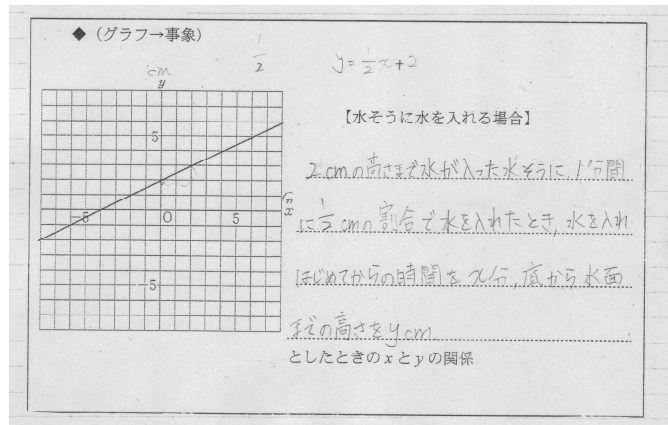 ◆（グラフ→事象）
1/2
y=1/2x+2
cm
y
【水そうに水を入れる場合】
5
2cmの高さまで水が入った水そうに、1分間
分
-5 O 5 x
に1/2cmの割合で水を入れたとき、水を入れ
はじめてからの時間をx分、底から水面
-5
までの高さをycm
としたときのxとyの関係